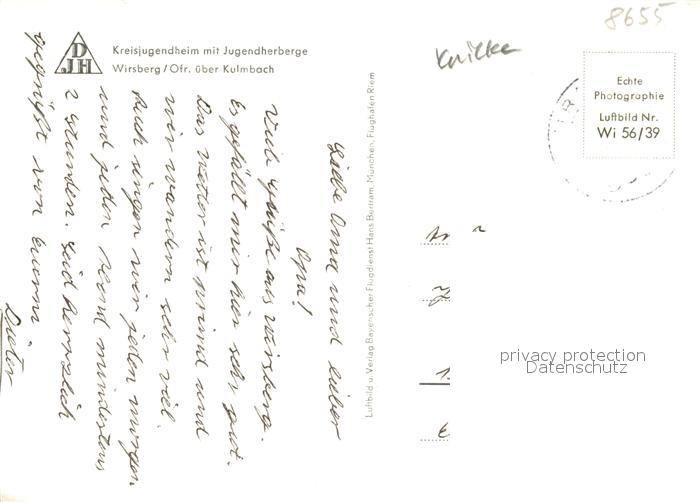 8655
Knicke
DJH
Kreisjugendheim mit Jugendherberge
Wirsberg/Ofr. über Kulmbach
Echte
Photographie
Luftbild Nr.
Wi 56/39
Luftbild u. Verlag Bayerischer Flugdienst Hans Bertram, München, Flughafen Riem
Liebe Oma und lieber
Opa!
Viele Grüße aus Wirsberg.
Es gefällt mir hier sehr gut.
Das Wetter ist und
wir wandern sehr viel.
Auch singen wir jeden morgen
und jeden Abend mindestens
2 Stunden. Seid herzlich
gegrüßt von Eurem
Dieter
privacy protection
Datenschutz